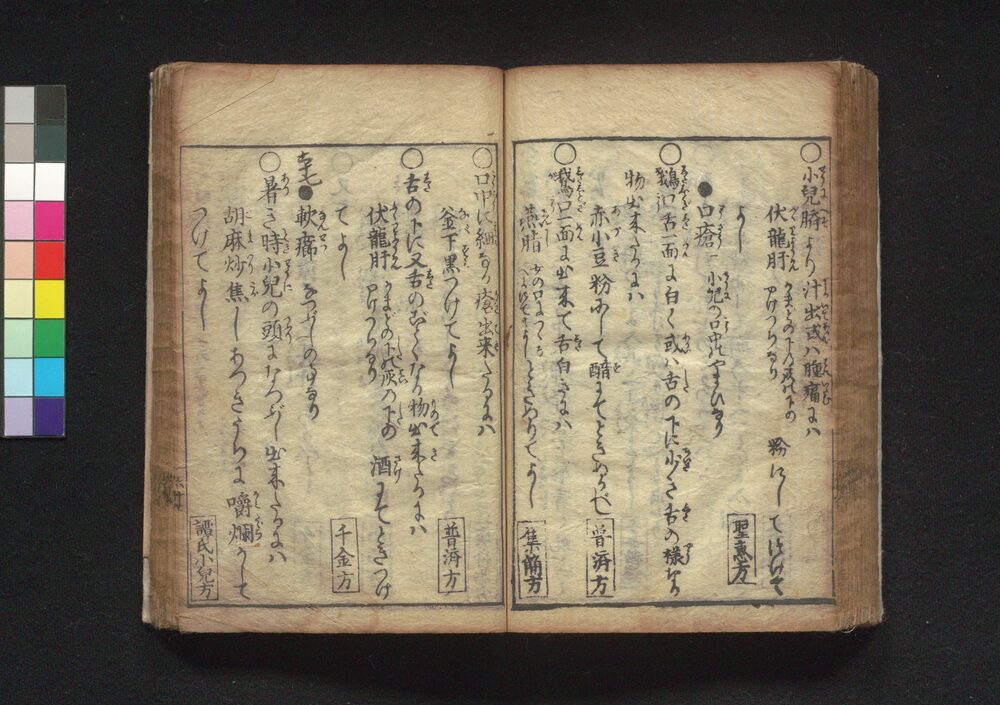 ○小児臍より汁出或ハ腫痛にハ
伏龍肝 かまどの下の灰の下の やけつちなり 粉にして付けて
よし 聖恵方
●口瘡 小児の口中のやまひなり
○鵝口舌一面に白く或ハ舌の下に少さき舌の様なる
物出来たるにハ
赤小豆粉にして醋にてときぬるべし 普済方
○鵝口一面に出来て舌白きにハ
燕脂 ときぬりてよし 集簡方
○口中に細なる瘡出来たるにハ
釜下黒つけてよし 普済方
○舌の下に又舌のごとくなる物出来たるにハ
伏龍肝 かまどの下の灰の下の やけつちなり 酒にてときつけ
てよし 千金方
●軟癤 なつぶしの事なり
○暑き時小児の頭になつぶし出来たるにハ
胡麻炒焦しあつきうちに嚼爛かして
つけてよし 譚氏小児方